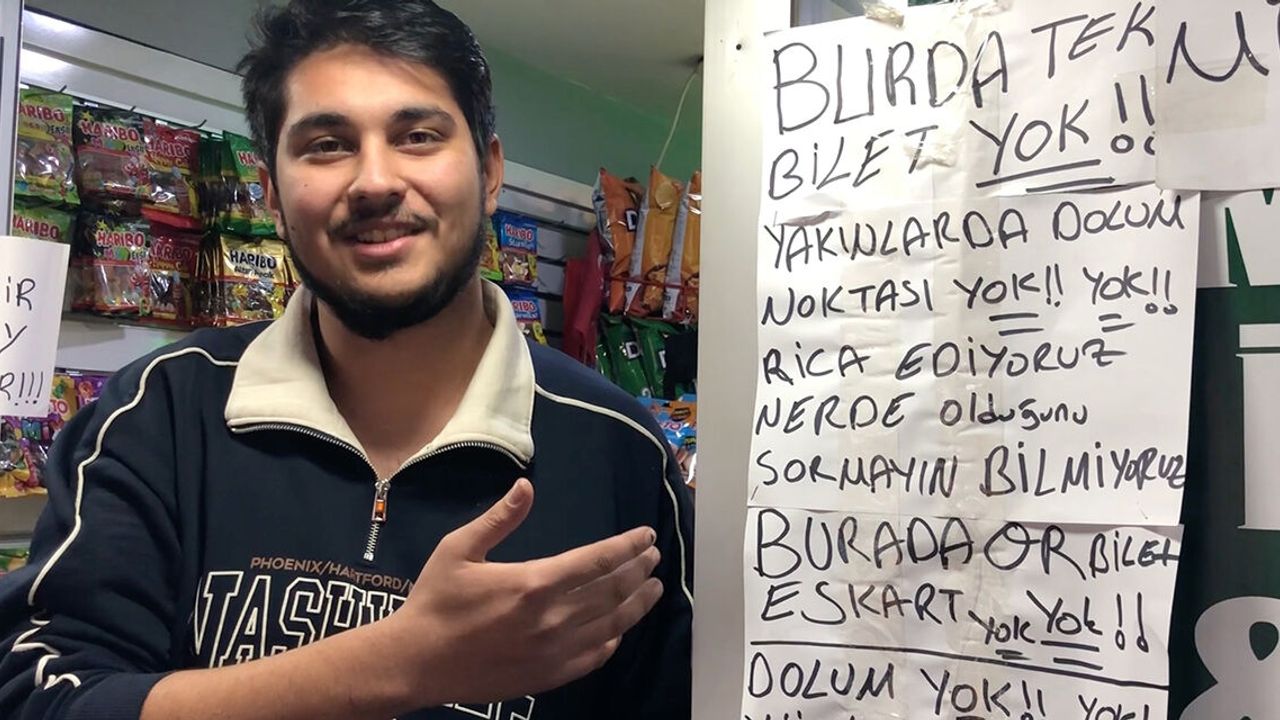 BURDA TEK
BİLET YOK!!
YAKINLARDA DOLUM
NOKTASI YOK!! YOK!!
RİCA EDİYORUZ
NERDE olduğunu
SORMAYIN BİLMİYORUZ
BURADA OR BİLET
ESKART YOK YOK!!
DOLUM YOK!! YOK!
HARIBO
HARIBO
HARIBO
HARIBO
HARIBO
HARIBO
HARIBO
PHOENIX/HARTFORD/
NASHV